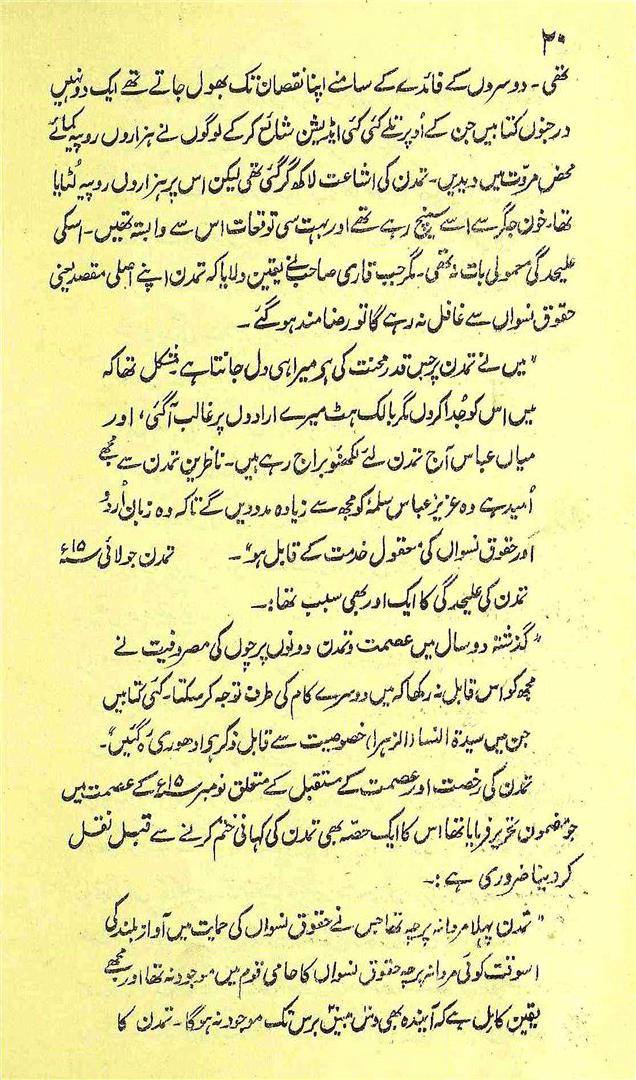 ۲۰
تھی۔ دوسروں کے فائدے کے سامنے اپنا نقصان تک بھول جاتے تھے ایک دو نہیں
درجنوں کتابیں جن کے اُوپر تلے کئی کئی ایڈیشن شائع کر کے لوگوں نے ہزاروں روپیہ کمائے
محض مروّت میں دیدیں۔ تمدن کی اشاعت لاکھ گر گئی تھی لیکن اس پر ہزاروں روپیہ لُٹایا
تھا۔ خون جگر سے اسے سینچ رہے تھے اور بہت سی توقعات اس سے وابستہ تھیں۔ اسکی
علیحدگی معمولی بات نہ تھی۔ مگر جب قاری صاحب نے یقین دلایا کہ تمدن اپنے اصلی مقصد یعنی
حقوق نسواں سے غافل نہ رہے گا تو رضامند ہو گئے۔
"میں نے تمدن پر جس قدر محنت کی ہو میرا ہی دل جانتا ہے۔ مشکل تھا کہ
میں اس کو جُدا کروں مگر بالک ہٹ میرے ارادوں پر غالب آ گئی، اور
میاں عباس آج تمدن لئے لکھنؤ براج رہے ہیں۔ ناظرین تمدن سے مجھے
اُمید ہے وہ عزیز عباس سلمہٗ کو مجھ سے زیادہ مدد دیں گے تاکہ وہ زبان اُردو
اور حقوق نسواں کی معقول خدمت کے قابل ہو"۔ تمدن جولائی ۱۵؁ء
تمدن کی علیحدگی کا ایک اور بھی سبب تھا:۔
"گذشتہ دو سال میں عصمت و تمدن دونوں پرچوں کی مصروفیت نے
مجھ کو اس قابل نہ رکھا کہ میں دوسرے کام کی طرف توجہ کر سکتا۔ کئی کتابیں
جن میں سیدۃ النسا (الزہرا) خصوصیت سے قابل ذکر ہو ادھوری رہ گئیں"۔
تمدن کی رخصت اور عصمت کے مستقبل کے متعلق نومبر ۱۵؁ء کے عصمت میں
جو مضمون تحریر فرمایا تھا اس کا ایک حصہ بھی تمدن کی کہانی ختم کرنے سے قبل نقل
کر دینا ضروری ہے:۔
"تمدن پہلا مردانہ پرچہ تھا جس نے حقوق نسواں کی حمایت میں آواز بلند کی
اسوقت کوئی مردانہ پرچہ حقوق نسواں کا حامی قوم میں موجود نہ تھا اور مجھے
یقین کامل ہے کہ آیندہ بھی دس بیس برس تک موجود نہ ہوگا۔ تمدن کا